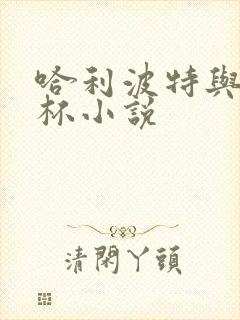 哈利波特與
杯小說
清閑丫頭